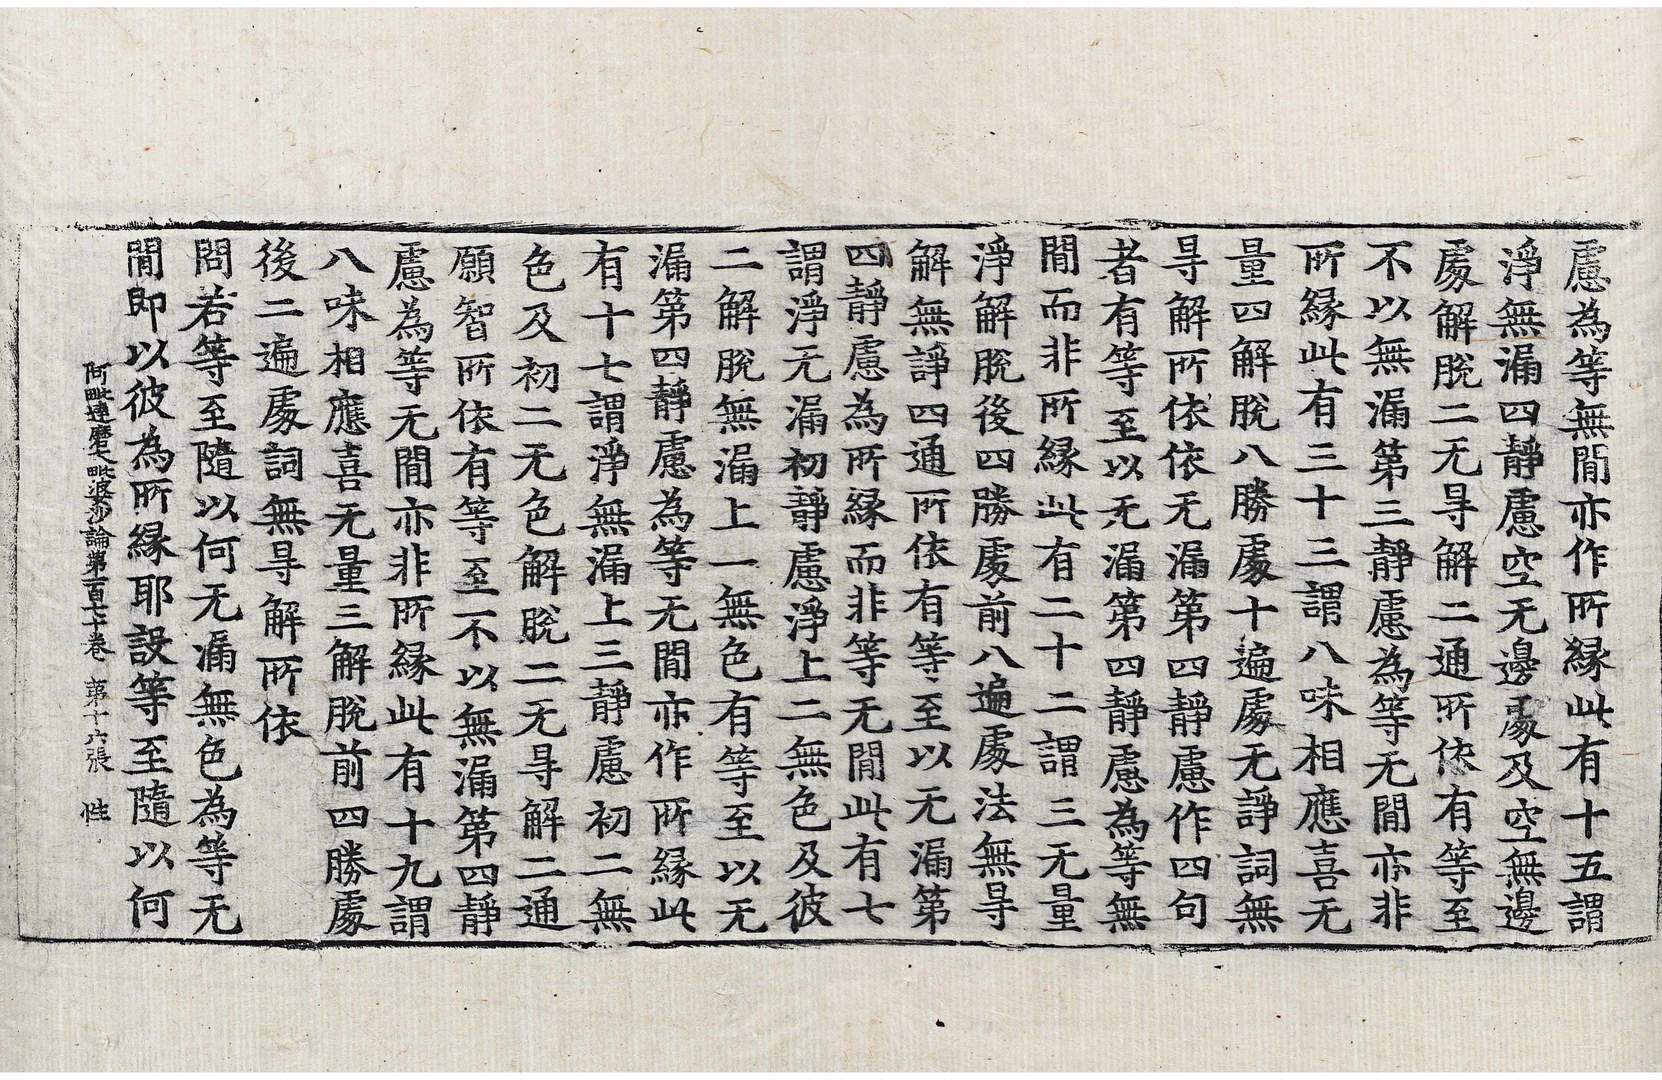 慮為等無間亦作所縁此有十五謂
淨無漏四靜慮空无邊處及空無邊
處解脫二无㝵解二通所依有等至
不以無漏第三靜慮為等无間亦非
所縁此有三十三謂八味相應喜无
量四解脫八勝處十遍處无諍詞無
㝵解所依依无漏第四靜慮作四句
者有等至以无漏第四靜慮為等無
間而非所縁此有二十二謂三无量
淨解脫後四勝處前八遍處法無㝵
解無諍四通所依有等至以无漏第
四靜慮為所縁而非等无間此有七
謂淨无漏初靜慮淨上二無色及彼
二解脫無漏上一無色有等至以无
漏第四靜慮為等无間亦作所縁此
有十七謂淨無漏上三靜慮初二無
色及初二无色解脫二无㝵解二通
願智所依有等至不以無漏第四靜
慮為等无間亦非所縁此有十九謂
八味相應喜无量三解脫前四勝處
後二遍處詞無㝵解所依
問若等至隨以何无漏無色為等无
間即以彼為所縁耶設等至隨以何
阿毗達磨大毗婆沙論第百七十卷 第十六張 性